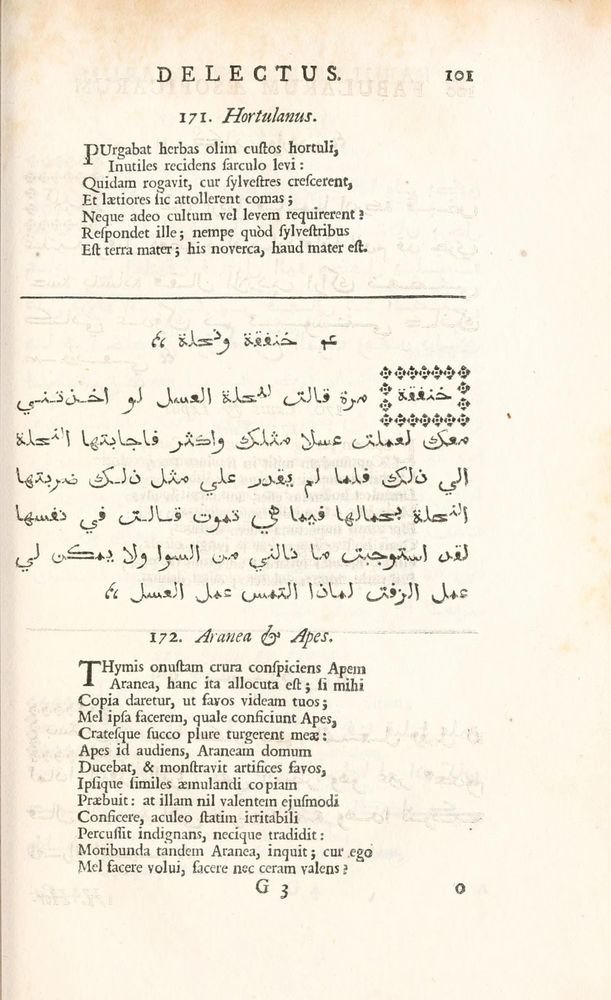 DELECTUS. 101
171. Hortulanus.
PUrgabat herbas olim cuſtos hortuli,
Inutiles recidens ſarculo levi :
Quidam rogavit, cur ſylveſtres creſcerent,
Et lætiores ſic attollerent comas ;
Neque adeo cultum vel levem requirerent ?
Reſpondet ille ; nempe quòd ſylveſtribus
Eſt terra mater ; his noverca, haud mater eſt.
خنفقة ونحلة
خنفقة مرة قالت لنحلة العسل لو اخذتني
معك لعملت عسلا مثلك واكثر فاجابتها النحلة
الي ذلك فلما لم يقدر علي مثل ذلك ضربتها
النحلة بحمالها فيما هي تموت قالت في نفسها
لقد استوجبت ما نالني من السوا ولا يمكن لي
عمل الزفت لماذا التمس عمل العسل
172. Aranea & Apes.
THymis onuſtam crura conſpiciens Apem
Aranea, hanc ita allocuta eſt ; ſi mihi
Copia daretur, ut favos videam tuos ;
Mel ipſa facerem, quale conficiunt Apes,
Crateſque ſucco plure turgerent meæ :
Apes id audiens, Araneam domum
Ducebat, & monſtravit artifices favos,
Ipſique ſimiles æmulandi copiam
Præbuit : at illam nil valentem ejuſmodi
Conficere, aculeo ſtatim irritabili
Percuſſit indignans, necique tradidit :
Moribunda tandem Aranea, inquit ; cur ego
Mel facere volui, facere nec ceram valens ?
G 3 O